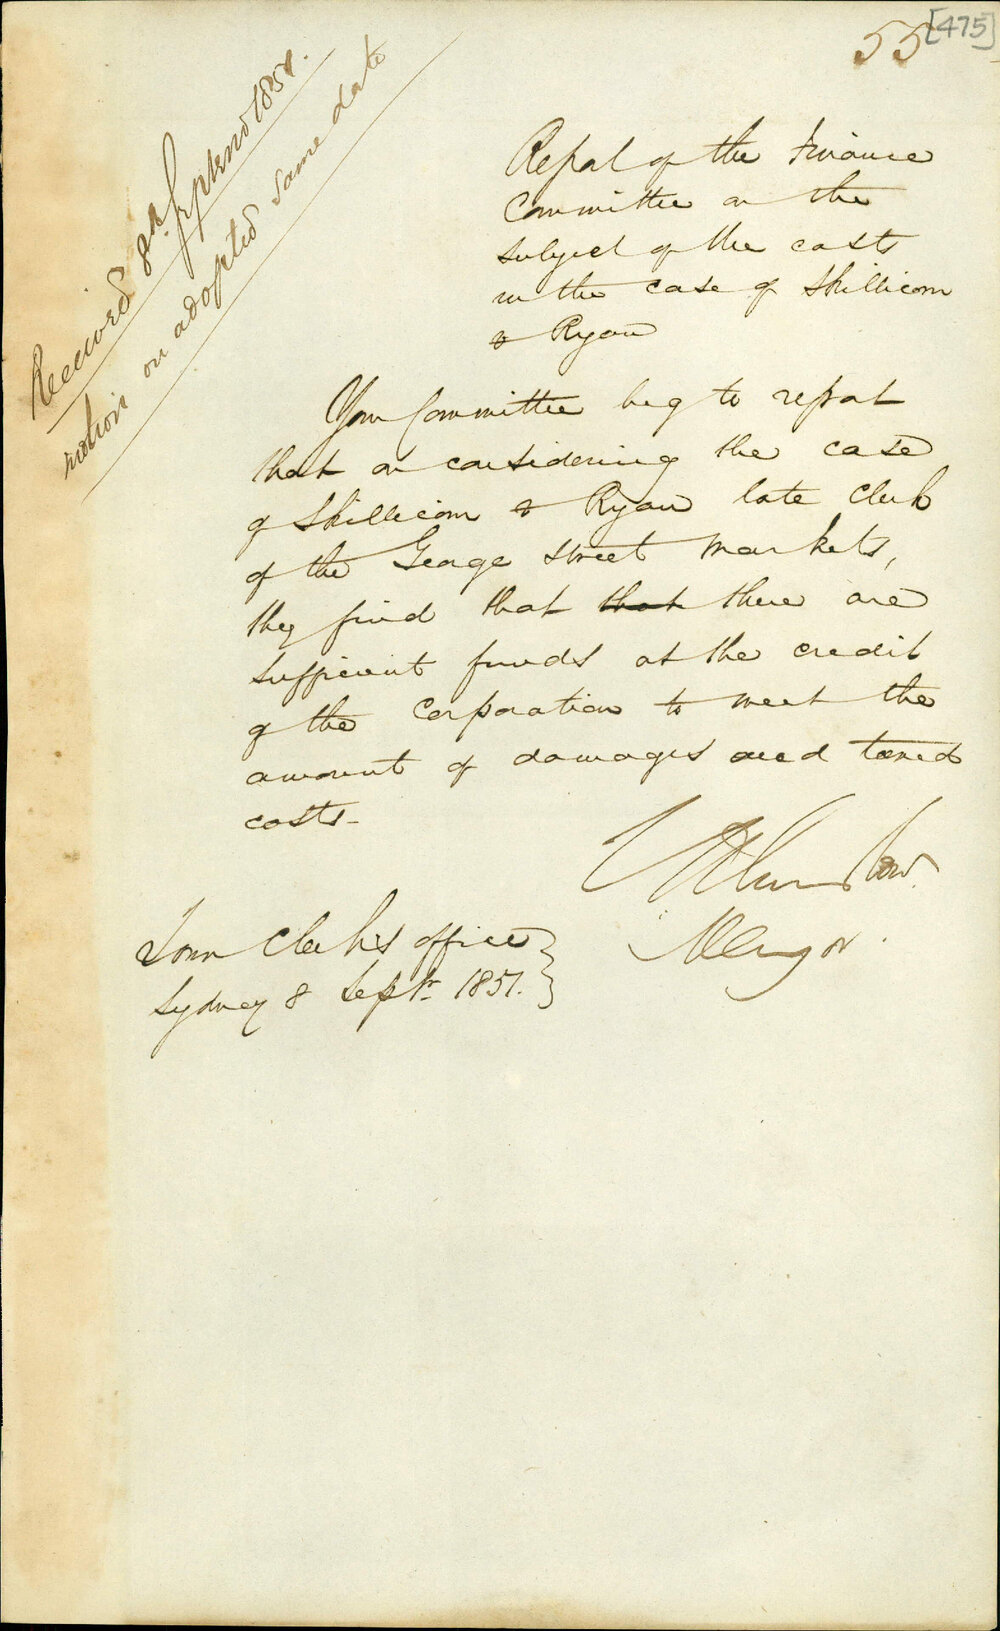 55 [475]
Received 8th September 1851.
motion on adopted same date
Report of the Finance
Committee on the
subject of the costs
in the case of Skillicorn
& Ryan
Your Committee beg to report
that on considering the case
of Skillicorn & Ryan late Clerk
of the George Street Markets,
they find that that there are
sufficient funds at the credit
of the Corporation to meet the
amount of damages and taxed
costs-
Mayor.
Town Clerk's office
Sydney 8 Septr 1851.